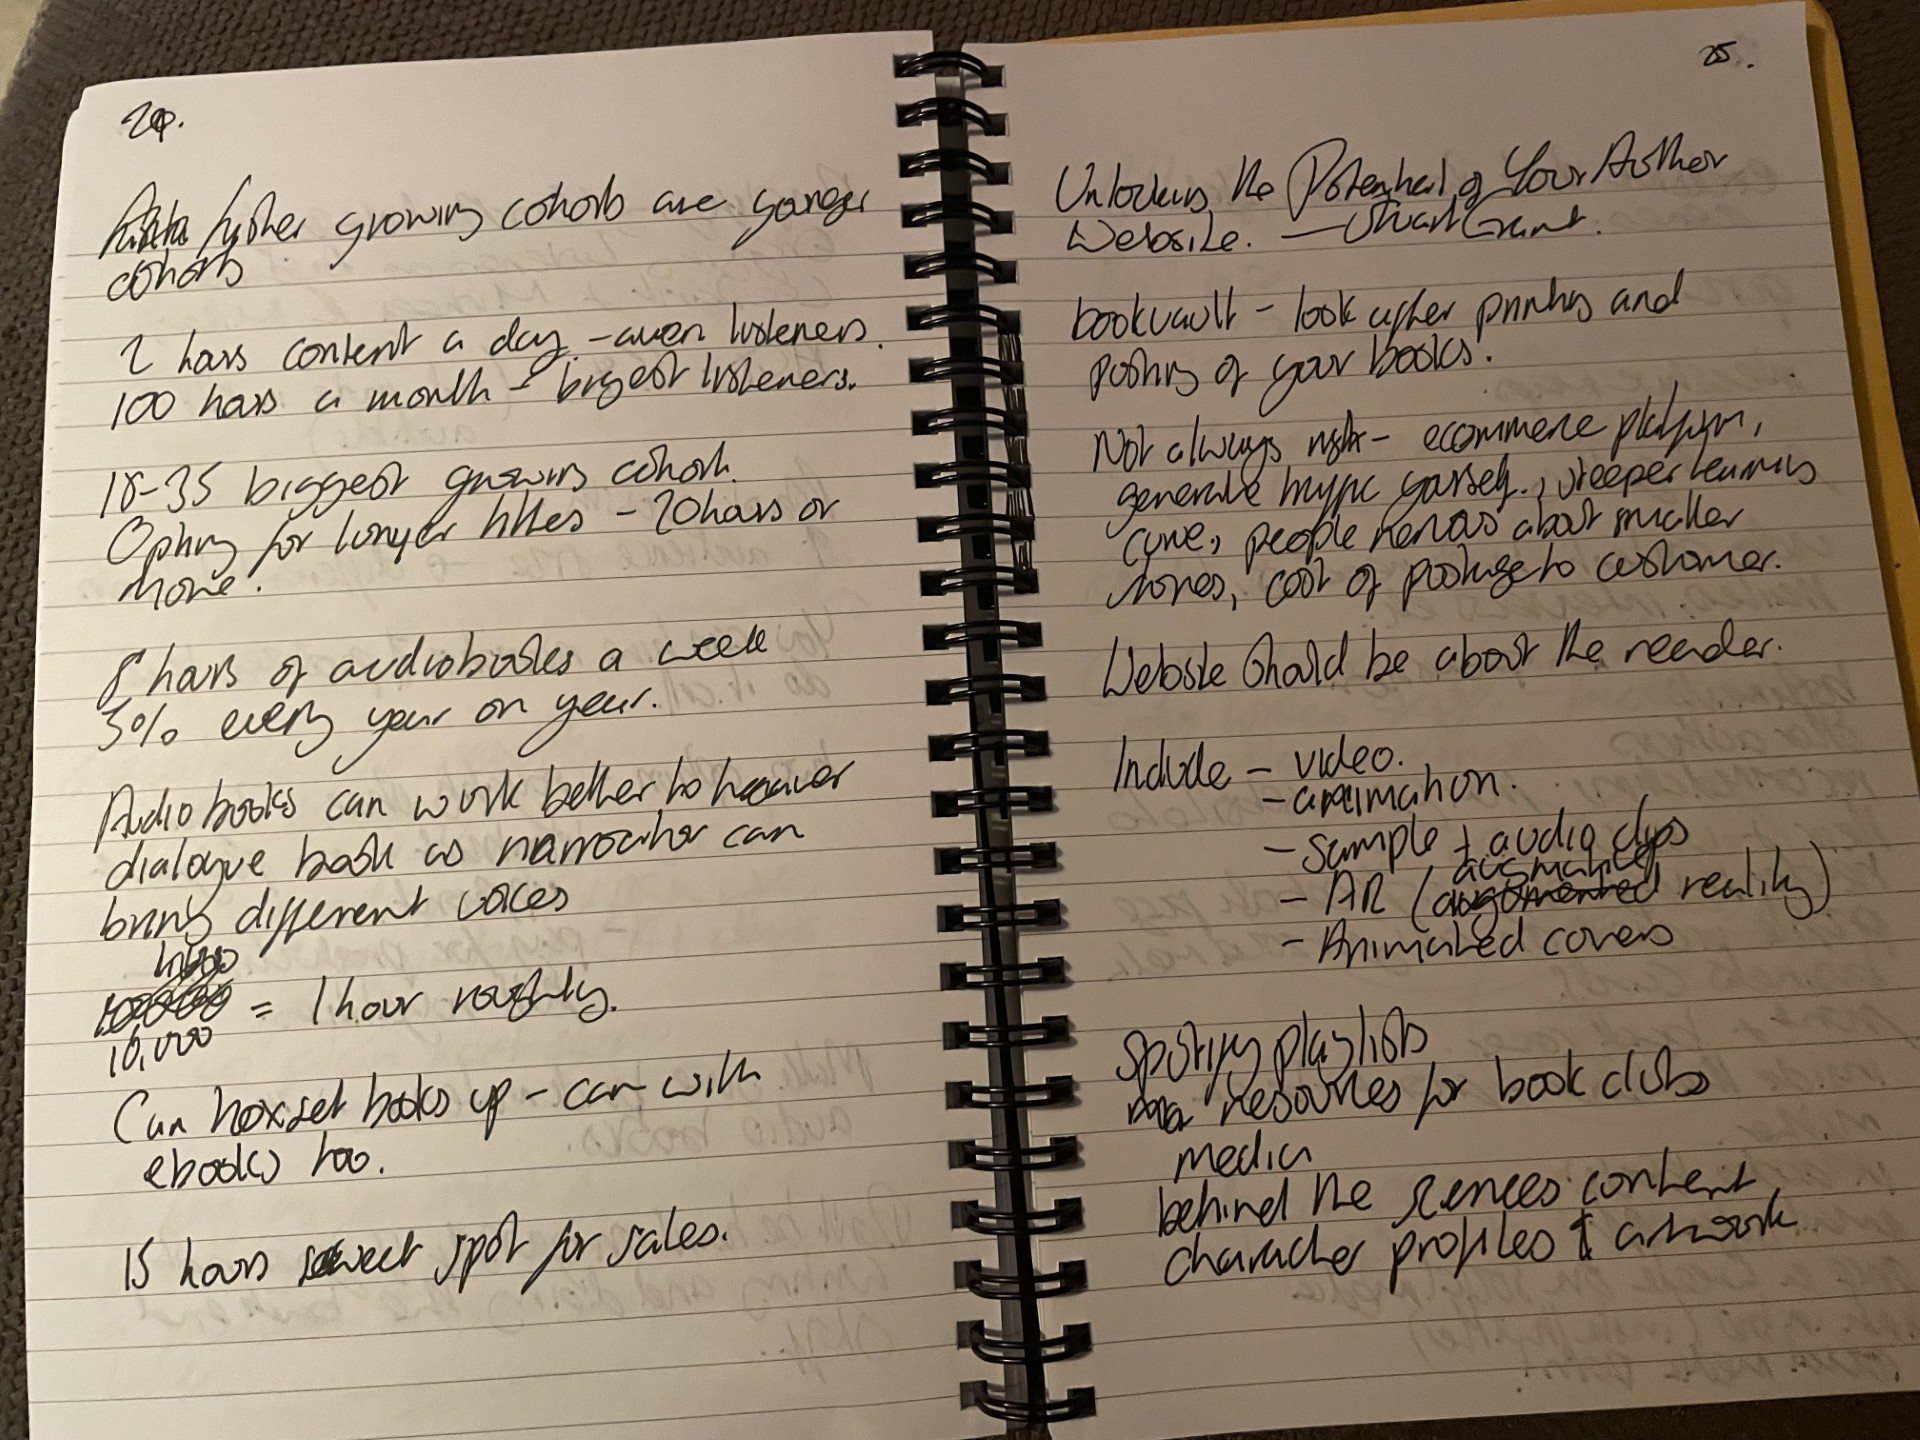 24.
growing cohorts are younger
cohorts
2 hours content a day - listeners.
100 hours a month - biggest listeners.
18-35 biggest growing cohort.
Opting for longer titles - 20 hours or
more.
8 hours of audiobooks a week
5% every year on year.
Audiobooks can work better to heavier
dialogue book as narrorator can
bring different voices
10,000 = 1 hour roughly.
Can boxset books up - can with
ebooks too.
15 hours sweet spot for sales.
25.
Unlocking the Potential of Your Author
Website. — Stuart Grant.
bookvault - look after printing and
posting of your books.
Not always right - ecommerce platform,
generate hype yourself, steeper learning
curve, people nervous about smaller
stores, cost of postage to customer.
Website should be about the reader.
Include - video.
- animation.
- sample + audio clips
- AR (augmented reality)
- Animated covers
Spotify playlists
resources for book clubs
media
behind the scences content
character profiles & artwork